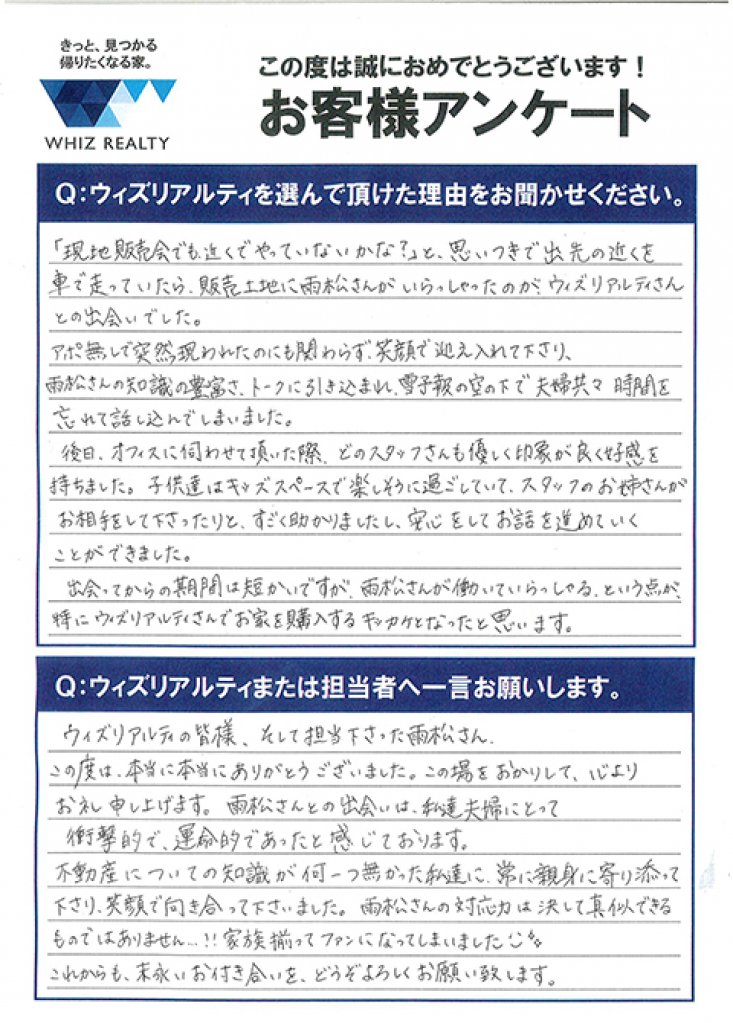 きっと、見つかる
帰りたくなる家。
WHIZ REALTY
この度は誠におめでとうございます！
お客様アンケート
Q：ウィズリアルティを選んで頂けた理由をお聞かせください。
「現地販売会でも近くでやっていないかな？」と、思いつきで出先の近くを
車で走っていたら、販売土地に雨松さんがいらっしゃったのが、ウィズリアルティさん
との出会いでした。
アポ無しで突然現われたのにも関わらず、笑顔で迎え入れて下さり、
雨松さんの知識の豊富さ、トークに引き込まれ、雪予報の空の下で夫婦共々時間を
忘れて話し込んでしまいました。
後日、オフィスに伺わせて頂いた際、どのスタッフさんも優しく印象が良く好感を
持ちました。子供達はキッズスペースで楽しそうに過ごしていて、スタッフのお姉さんが
お相手をして下さったりと、すごく助かりましたし、安心をしてお話を進めていく
ことができました。
出会ってからの期間は短かいですが、雨松さんが働いていらっしゃる、という点が、
特にウィズリアルティさんでお家を購入するキッカケとなったと思います。
Q：ウィズリアルティまたは担当者へ一言お願いします。
ウィズリアルティの皆様、そして担当下さった雨松さん、
この度は、本当に本当にありがとうございました。この場をおかりして、心より
お礼申し上げます。雨松さんとの出会いは、私達夫婦にとって
衝撃的で、運命的であったと感じております。
不動産についての知識が何一つ無かった私達に、常に親身に寄り添って
下さり、笑顔で向き合って下さいました。雨松さんの対応力は決して真似できる
ものではありません…!! 家族揃ってファンになってしまいました
これからも、末永いお付き合いを、どうぞよろしくお願い致します。